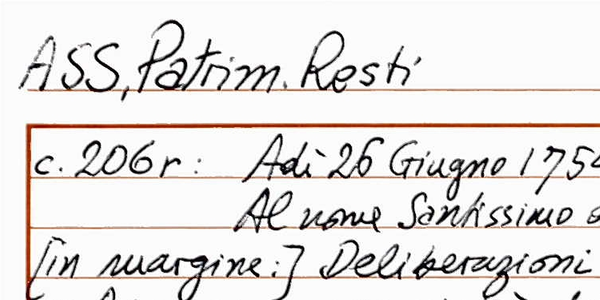 ASS, Patrim. Resti
c. 206r: Adì 26 Giugno 1754
Al nome Santissimo
[in margine:] Deliberazioni